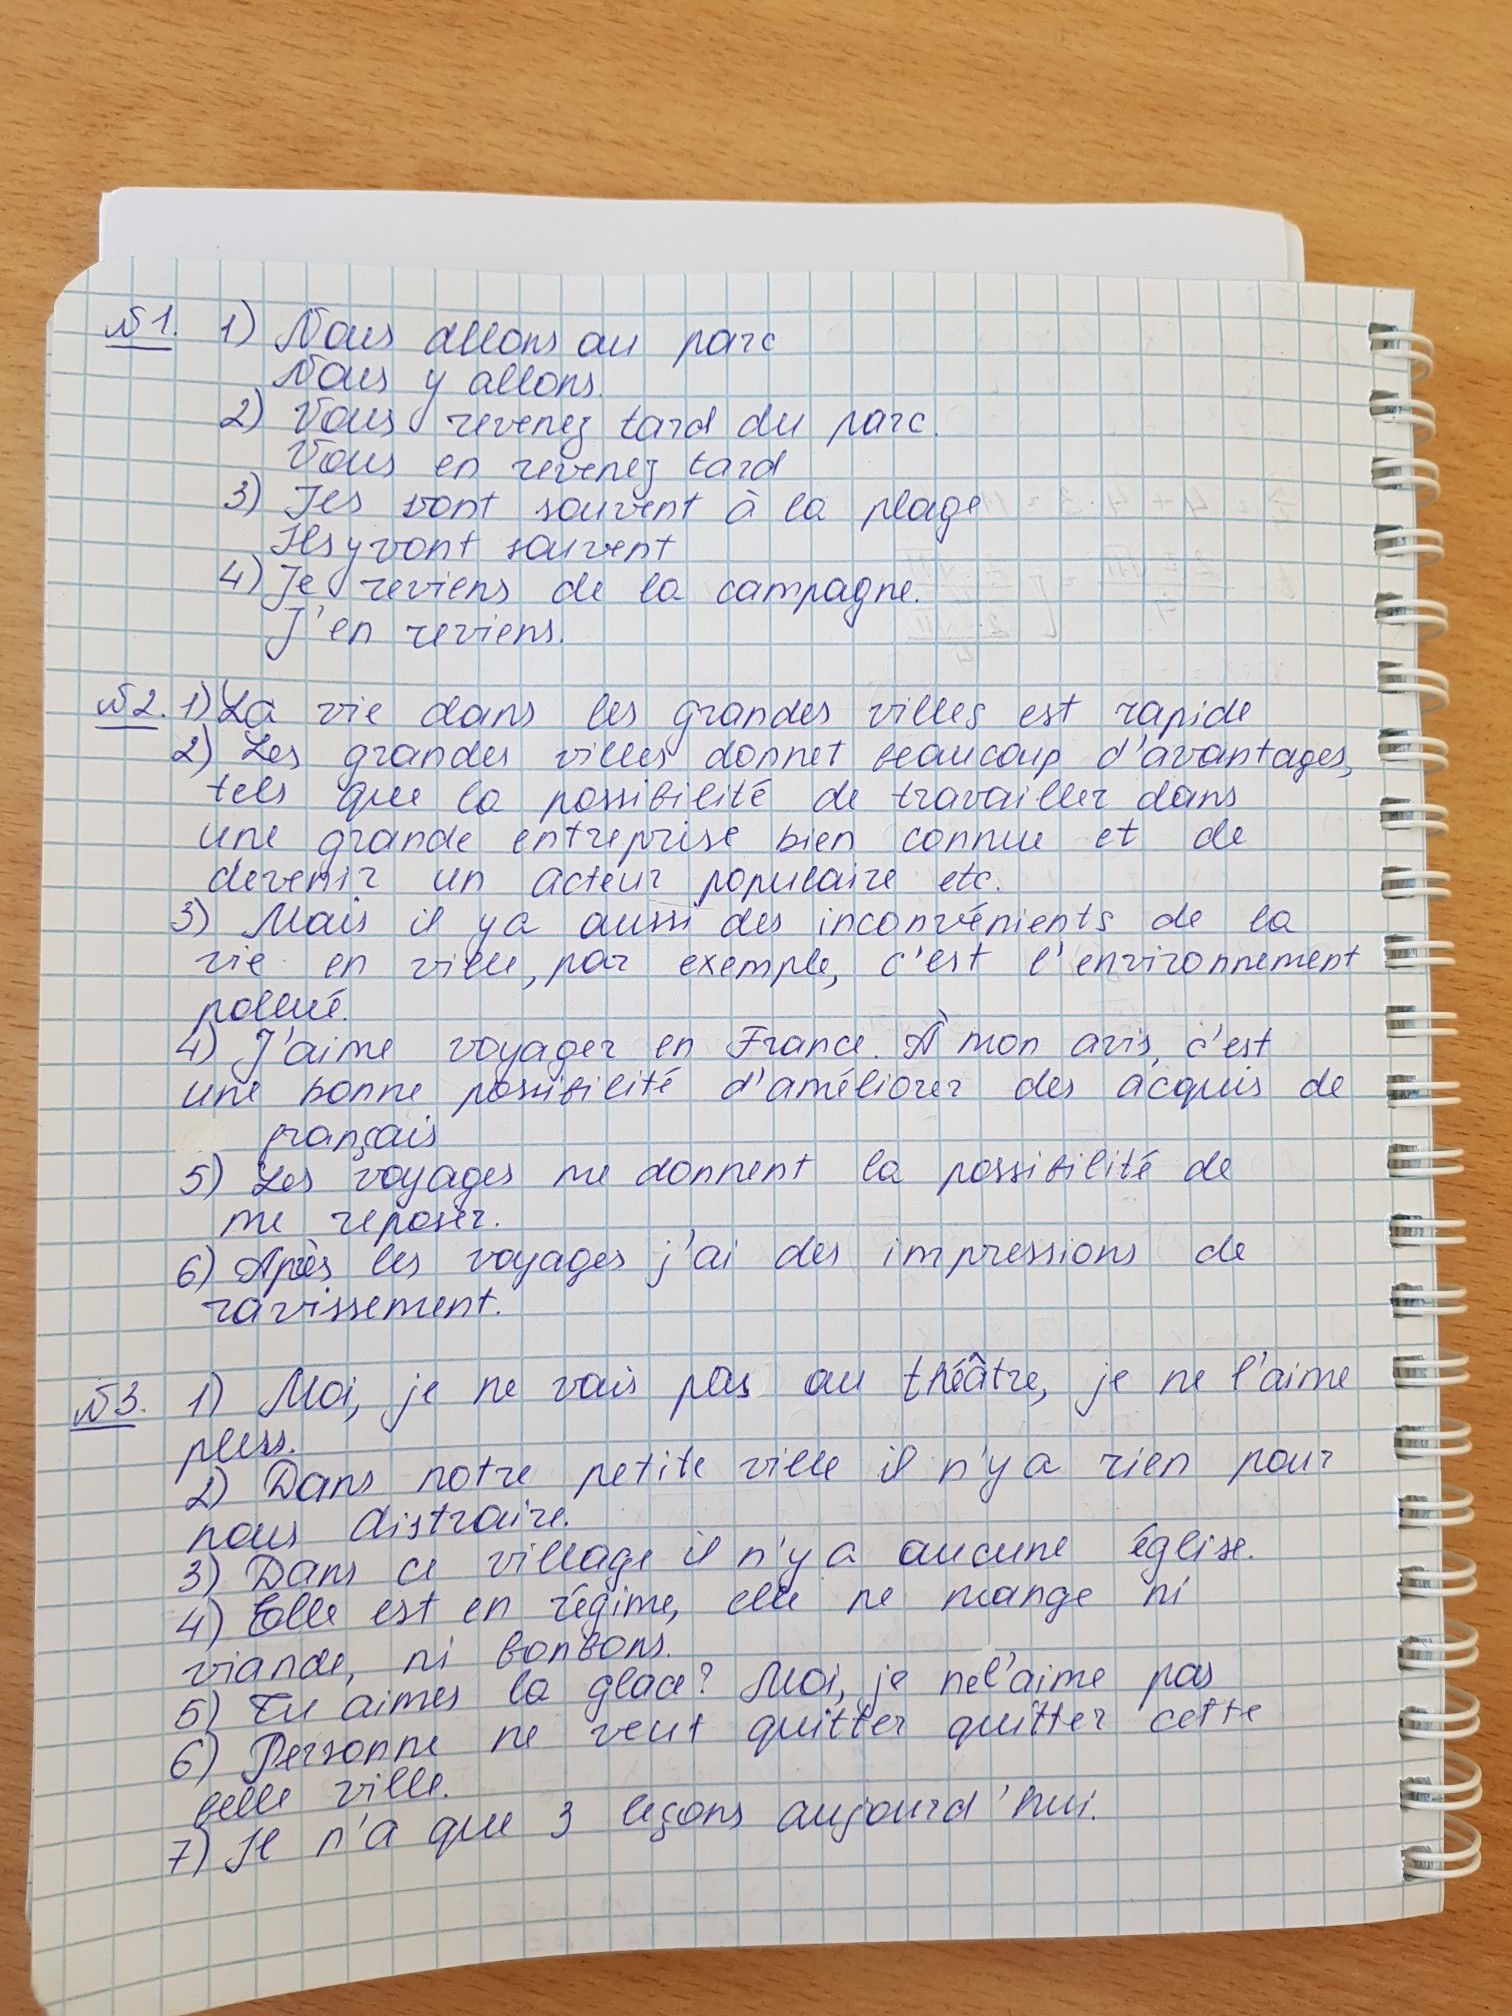 №1. 1) Nous allons au parc
Nous y allons.
2) Vous revenez tard du parc.
Vous en revenez tard
3) Ils vont souvent à la plage
Ils y vont souvent
4) Je reviens de la campagne.
J'en reviens.
№2. 1) La vie dans les grandes villes est rapide
2) Les grandes villes donnet beaucoup d'avantages,
tels que la possibilité de travailler dans
une grande entreprise bien connue et de
devenir un acteur populaire etc.
3) Mais il y a aussi des inconvénients de la
vie en ville, par exemple, c'est l'environnement
pollué.
4) J'aime voyager en France. À mon avis, c'est
une bonne possibilité d'améliorer des acquis de
français
5) Les voyages me donnent la possibilité de
me reposer.
6) Après les voyages j'ai des impressions de
ravissement.
№3. 1) Moi, je ne vais pas au théâtre, je ne l'aime
plus.
2) Dans notre petite ville il n'y a rien pour
nous distraire.
3) Dans ce village il n'y a aucune église.
4) Elle est en régime, elle ne mange ni
viande, ni bonbons.
5) Tu aimes la glace? Moi, je ne l'aime pas
6) Personne ne veut quitter quitter cette
belle ville.
7) Il n'a que 3 leçons aujourd'hui.